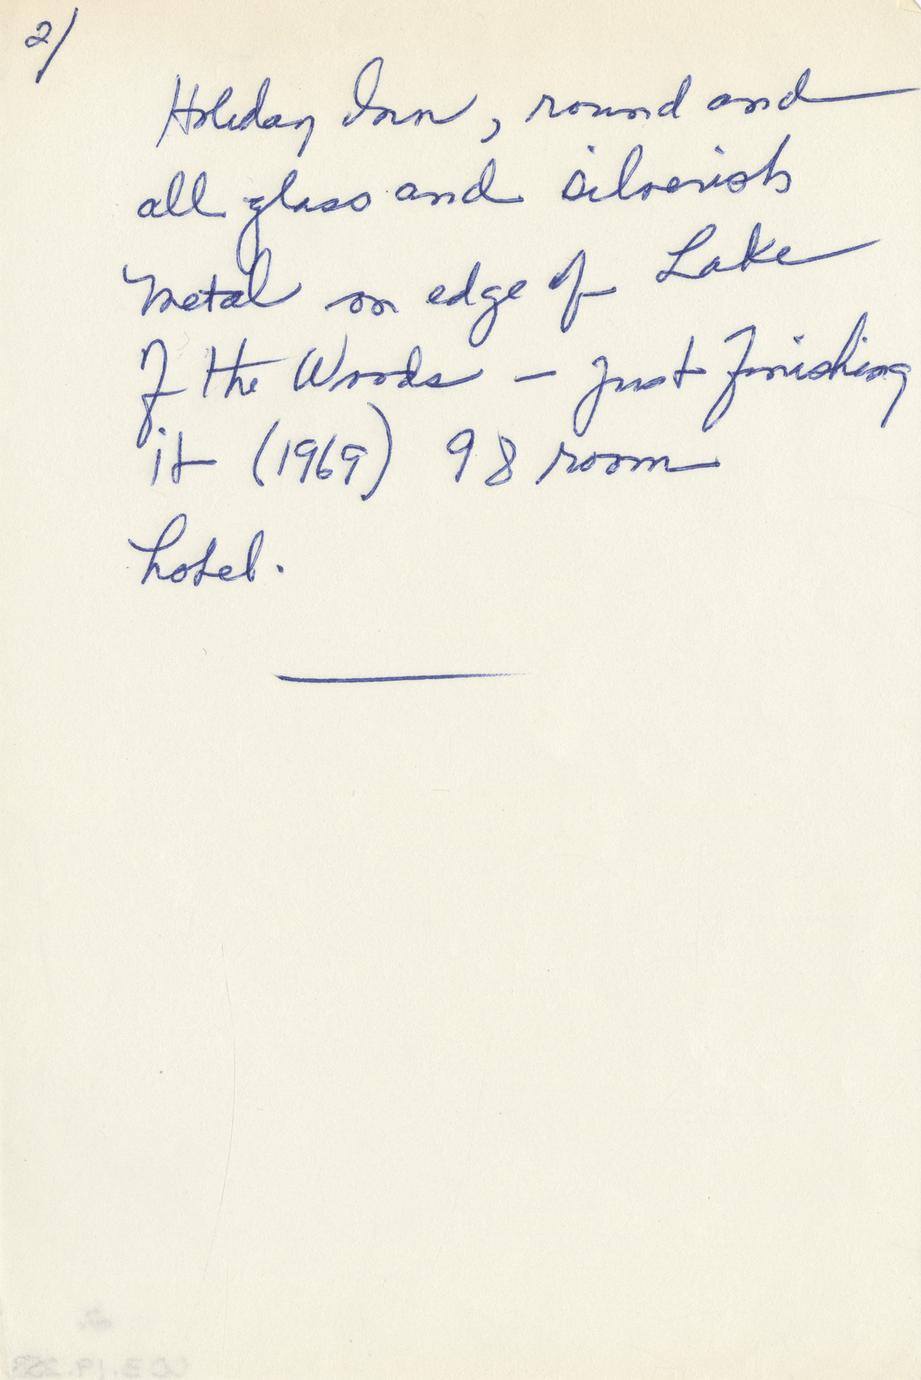 2/
Holiday Inn, round and
all glass and silverish
metal on edge of Lake
of the Woods – just finishing
it (1969) 98 room
hotel.